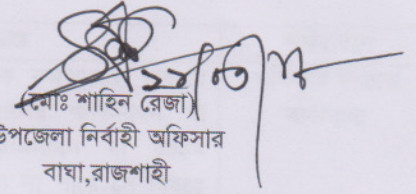 (মোঃ শাহিন রেজা)
উপজেলা নির্বাহী অফিসার
বাঘা,রাজশাহী